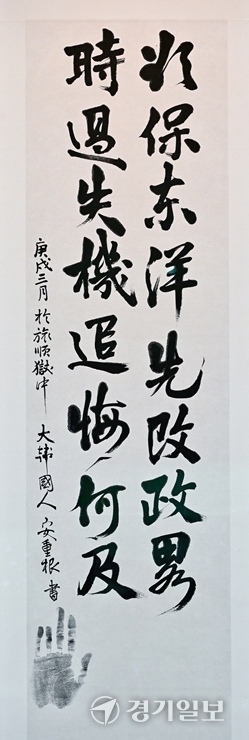 欲保东洋先改政畧
時過失機追悔何及
庚戌三月 於旅順獄中 大韓國人 安重根 書
경기일보